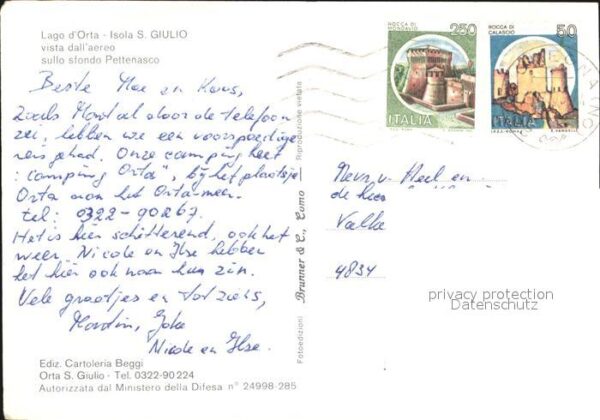 Lago d'Orta - Isola S. GIULIO
vista dall'aereo
sullo sfondo Pettenasco
Beste Moe en Kous,
Zoals Martin al door de telefoon
zei, hebben we een voorspoedige
reis gehad. Onze camping heet
"camping Orta", bij het plaatsje
Orta aan het Orta-meer.
tel: 0322-90267.
Het is hier schitterend, ook het
weer. Nicole en Ilse hebben
het hier ook naar hun zin.
Vele groetjes en tot ziens,
Martin, Joke
Nicole en Ilse.
Ediz. Cartoleria Beggi
Orta S. Giulio - Tel. 0322-90224
Autorizzata dal Ministero della Difesa n° 24998-285
Fotoedizioni Brunner & C., Como - Riproduzione vietata
ROCCA DI
MONDAVIO
250
ITALIA
ROCCA DI
CALASCIO
50
ITALIA
en
de hier
4834
privacy protection
Datenschutz